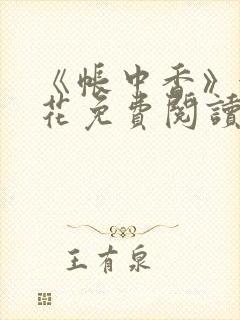 《帳中香》
花免費閱讀
王有泉